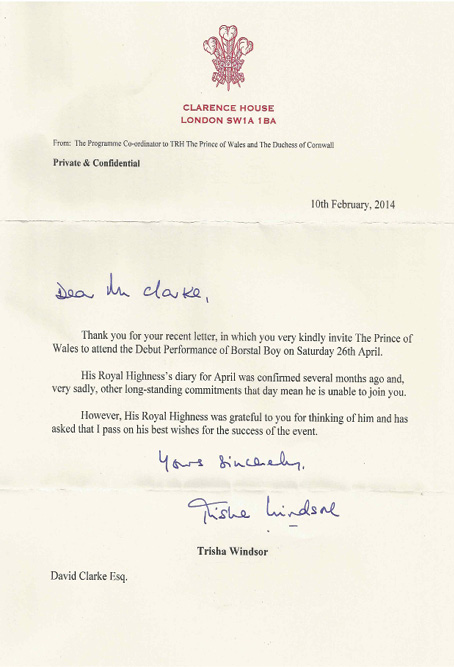 CLARENCE HOUSE
LONDON SW1A 1BA
From: The Programme Co-ordinator to TRH The Prince of Wales and The Duchess of Cornwall
Private & Confidential
10th February, 2014
Dear Mr Clarke,
Thank you for your recent letter, in which you very kindly invite The Prince of
Wales to attend the Debut Performance of Borstal Boy on Saturday 26th April.
His Royal Highness's diary for April was confirmed several months ago and,
very sadly, other long-standing commitments that day mean he is unable to join you.
However, His Royal Highness was grateful to you for thinking of him and has
asked that I pass on his best wishes for the success of the event.
Yours sincerely,
Trisha Windsor
Trisha Windsor
David Clarke Esq.